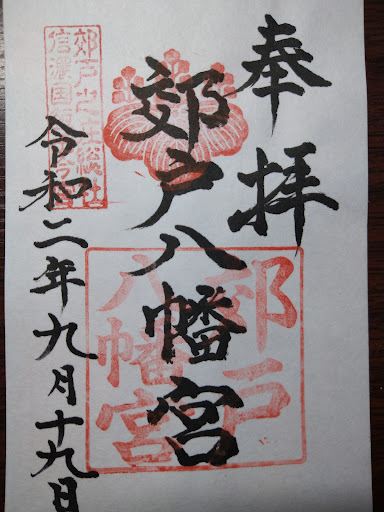 奉拝
郊戸八幡宮
令和二年九月十九日
郊戸
八幡宮